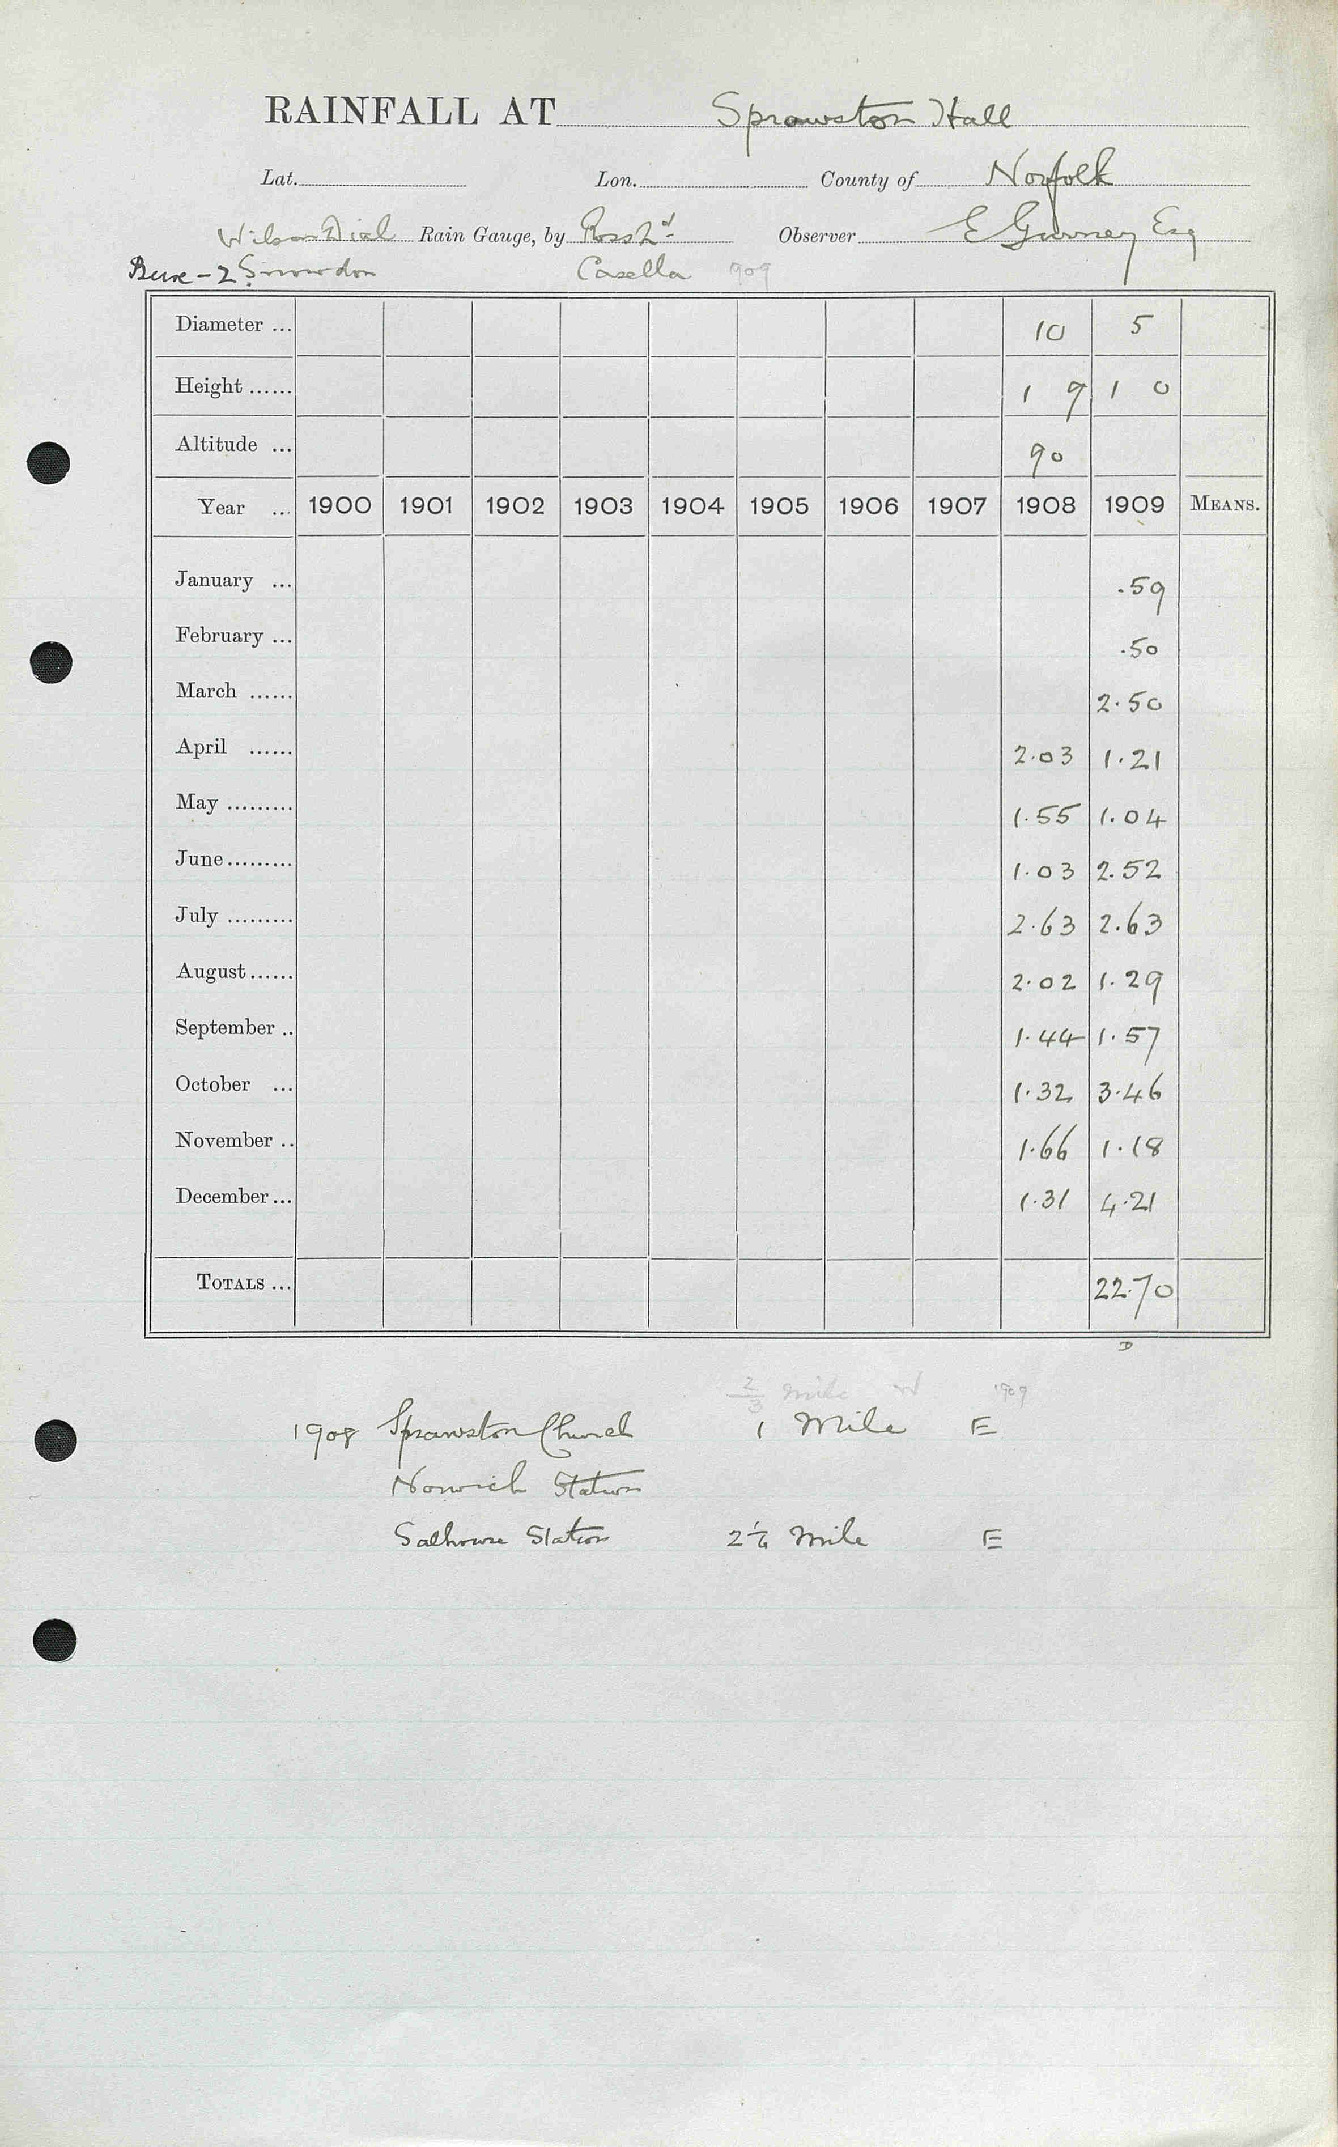 RAINFALL AT Sprowston Hall
Lat. Lon. County of Norfolk
Wilson Dial Rain Gauge, by Ross Ld Observer E Gurney Esq
Bure - 2 Snowdon Casella 909
Diameter ... 10 5
Height ...... 1 9 1 0
Altitude ... 90
Year ... 1900 1901 1902 1903 1904 1905 1906 1907 1908 1909 MEANS.
January ... .59
February ... .50
March ...... 2.50
April ...... 2.03 1.21
May ......... 1.55 1.04
June ......... 1.03 2.52
July ......... 2.63 2.63
August ...... 2.02 1.29
September .. 1.44 1.57
October ... 1.32 3.46
November .. 1.66 1.18
December ... 1.31 4.21
TOTALS ... 22.70
D
2/3 mile W 1909
1908 Sprowston Church 1 Mile E
Norwich Station
Salhouse Station Mile E